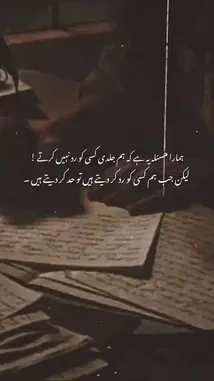 ہمارا مسئلہ یہ ہے کہ ہم جلدی کسی کو رد نہیں کرتے !
لیکن جب ہم کسی کو رد کر دیتے ہیں تو حد کر دیتے ہیں ۔